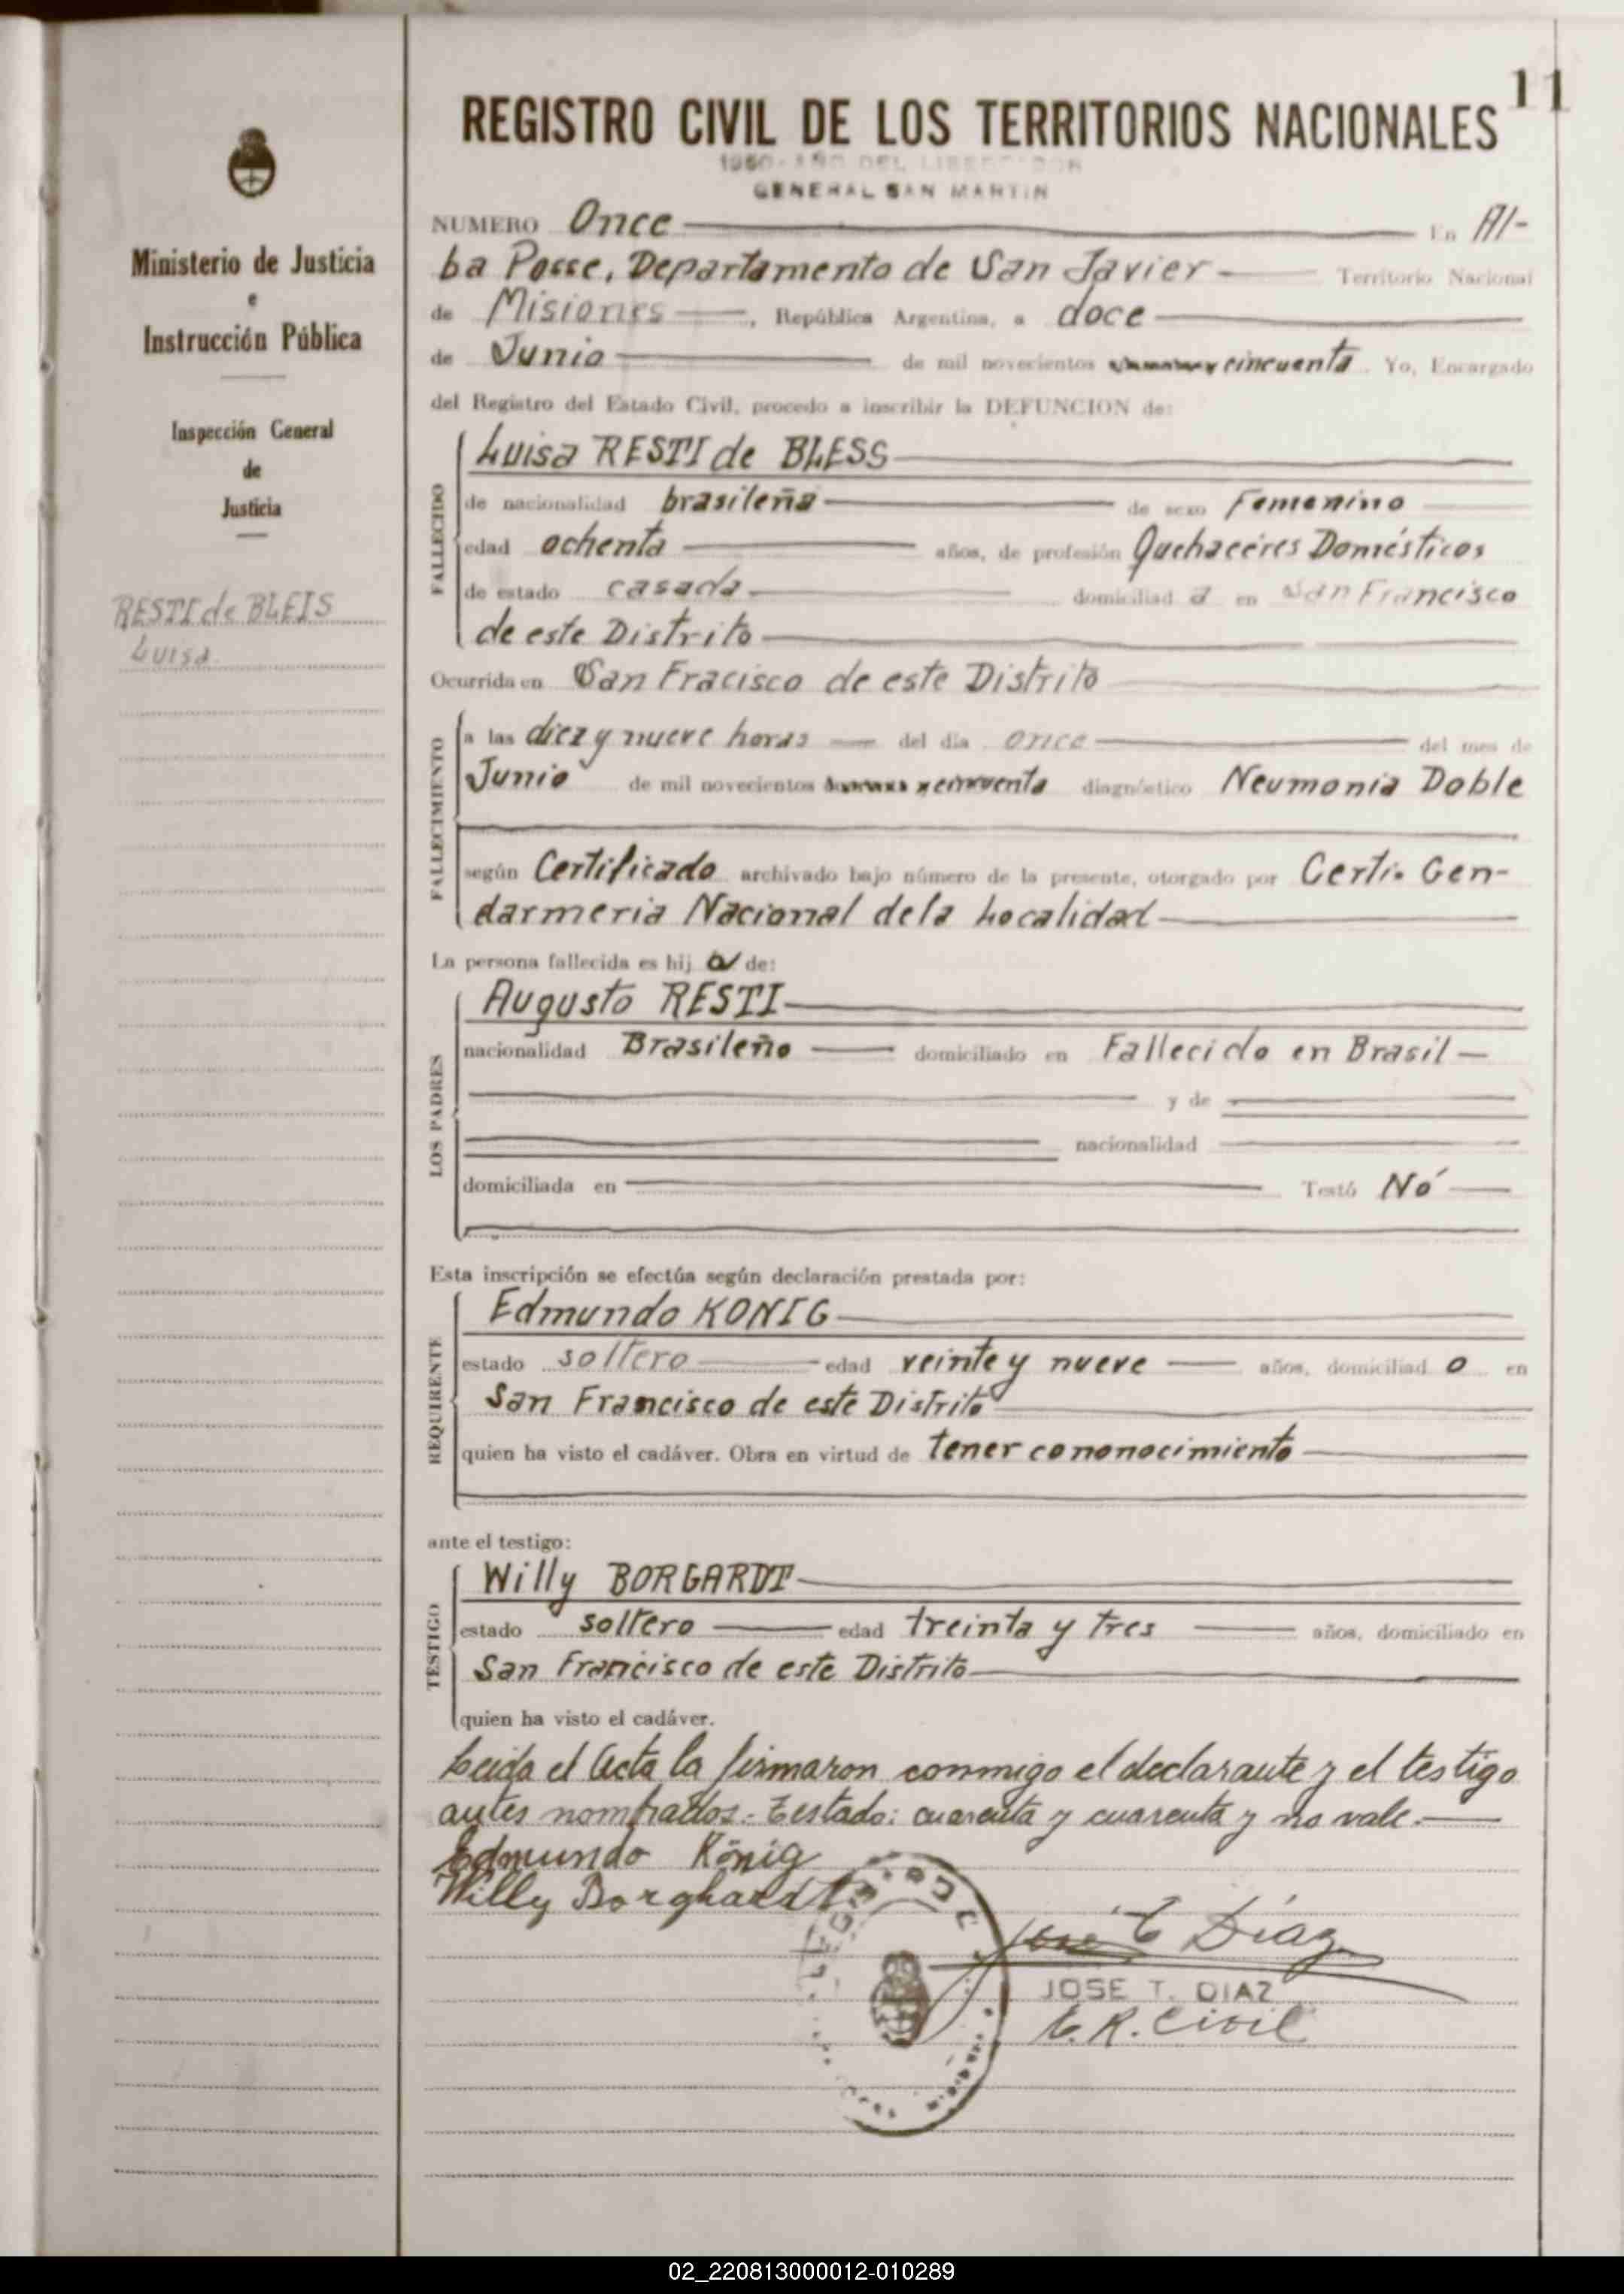 11
REGISTRO CIVIL DE LOS TERRITORIOS NACIONALES
1950 - AÑO DEL LIBERTADOR
GENERAL SAN MARTIN
Ministerio de Justicia
e
Instrucción Pública
Inspección General
de
Justicia
RESTI de BLEIS
Luisa.
NUMERO Once En Al-
ba Posse, Departamento de San Javier Territorio Nacional
de Misiones, República Argentina, a doce
de Junio de mil novecientos cincuenta. Yo, Encargado
del Registro del Estado Civil, procedo a inscribir la DEFUNCION de:
FALLECIDO
Luisa RESTI de BLESS
de nacionalidad brasileña de sexo Femenino
edad ochenta años, de profesión Quehacéres Domésticos
de estado casada domiciliad a en San Francisco
de este Distrito
Ocurrida en San Fracisco de este Distrito
FALLECIMIENTO
a las diez y nueve horas del día once del mes de
Junio de mil novecientos cincuenta diagnóstico Neumonia Doble
según Certificado archivado bajo número de la presente, otorgado por Certi. Gen-
darmeria Nacional de la Localidad
La persona fallecida es hij a de:
LOS PADRES
Augusto RESTI
nacionalidad Brasileño domiciliado en Fallecido en Brasil
y de
nacionalidad
domiciliada en Testó Nó
Esta inscripción se efectúa según declaración prestada por:
REQUIRENTE
Edmundo KONIG
estado soltero edad veinte y nueve años, domiciliad o en
San Francisco de este Distrito
quien ha visto el cadáver. Obra en virtud de tener cononocimiento
ante el testigo:
TESTIGO
Willy BORGARDT
estado soltero edad treinta y tres años, domiciliado en
San Francisco de este Distrito
quien ha visto el cadáver.
Leida el Acta la firmaron conmigo el declarante y el testigo
antes nombrados.- Testado: cuarenta y cuarenta y no vale.-
Edmundo König
Willy Borghardt
José T Díaz
JOSE T. DIAZ
E. R. Civil
02_220813000012-010289